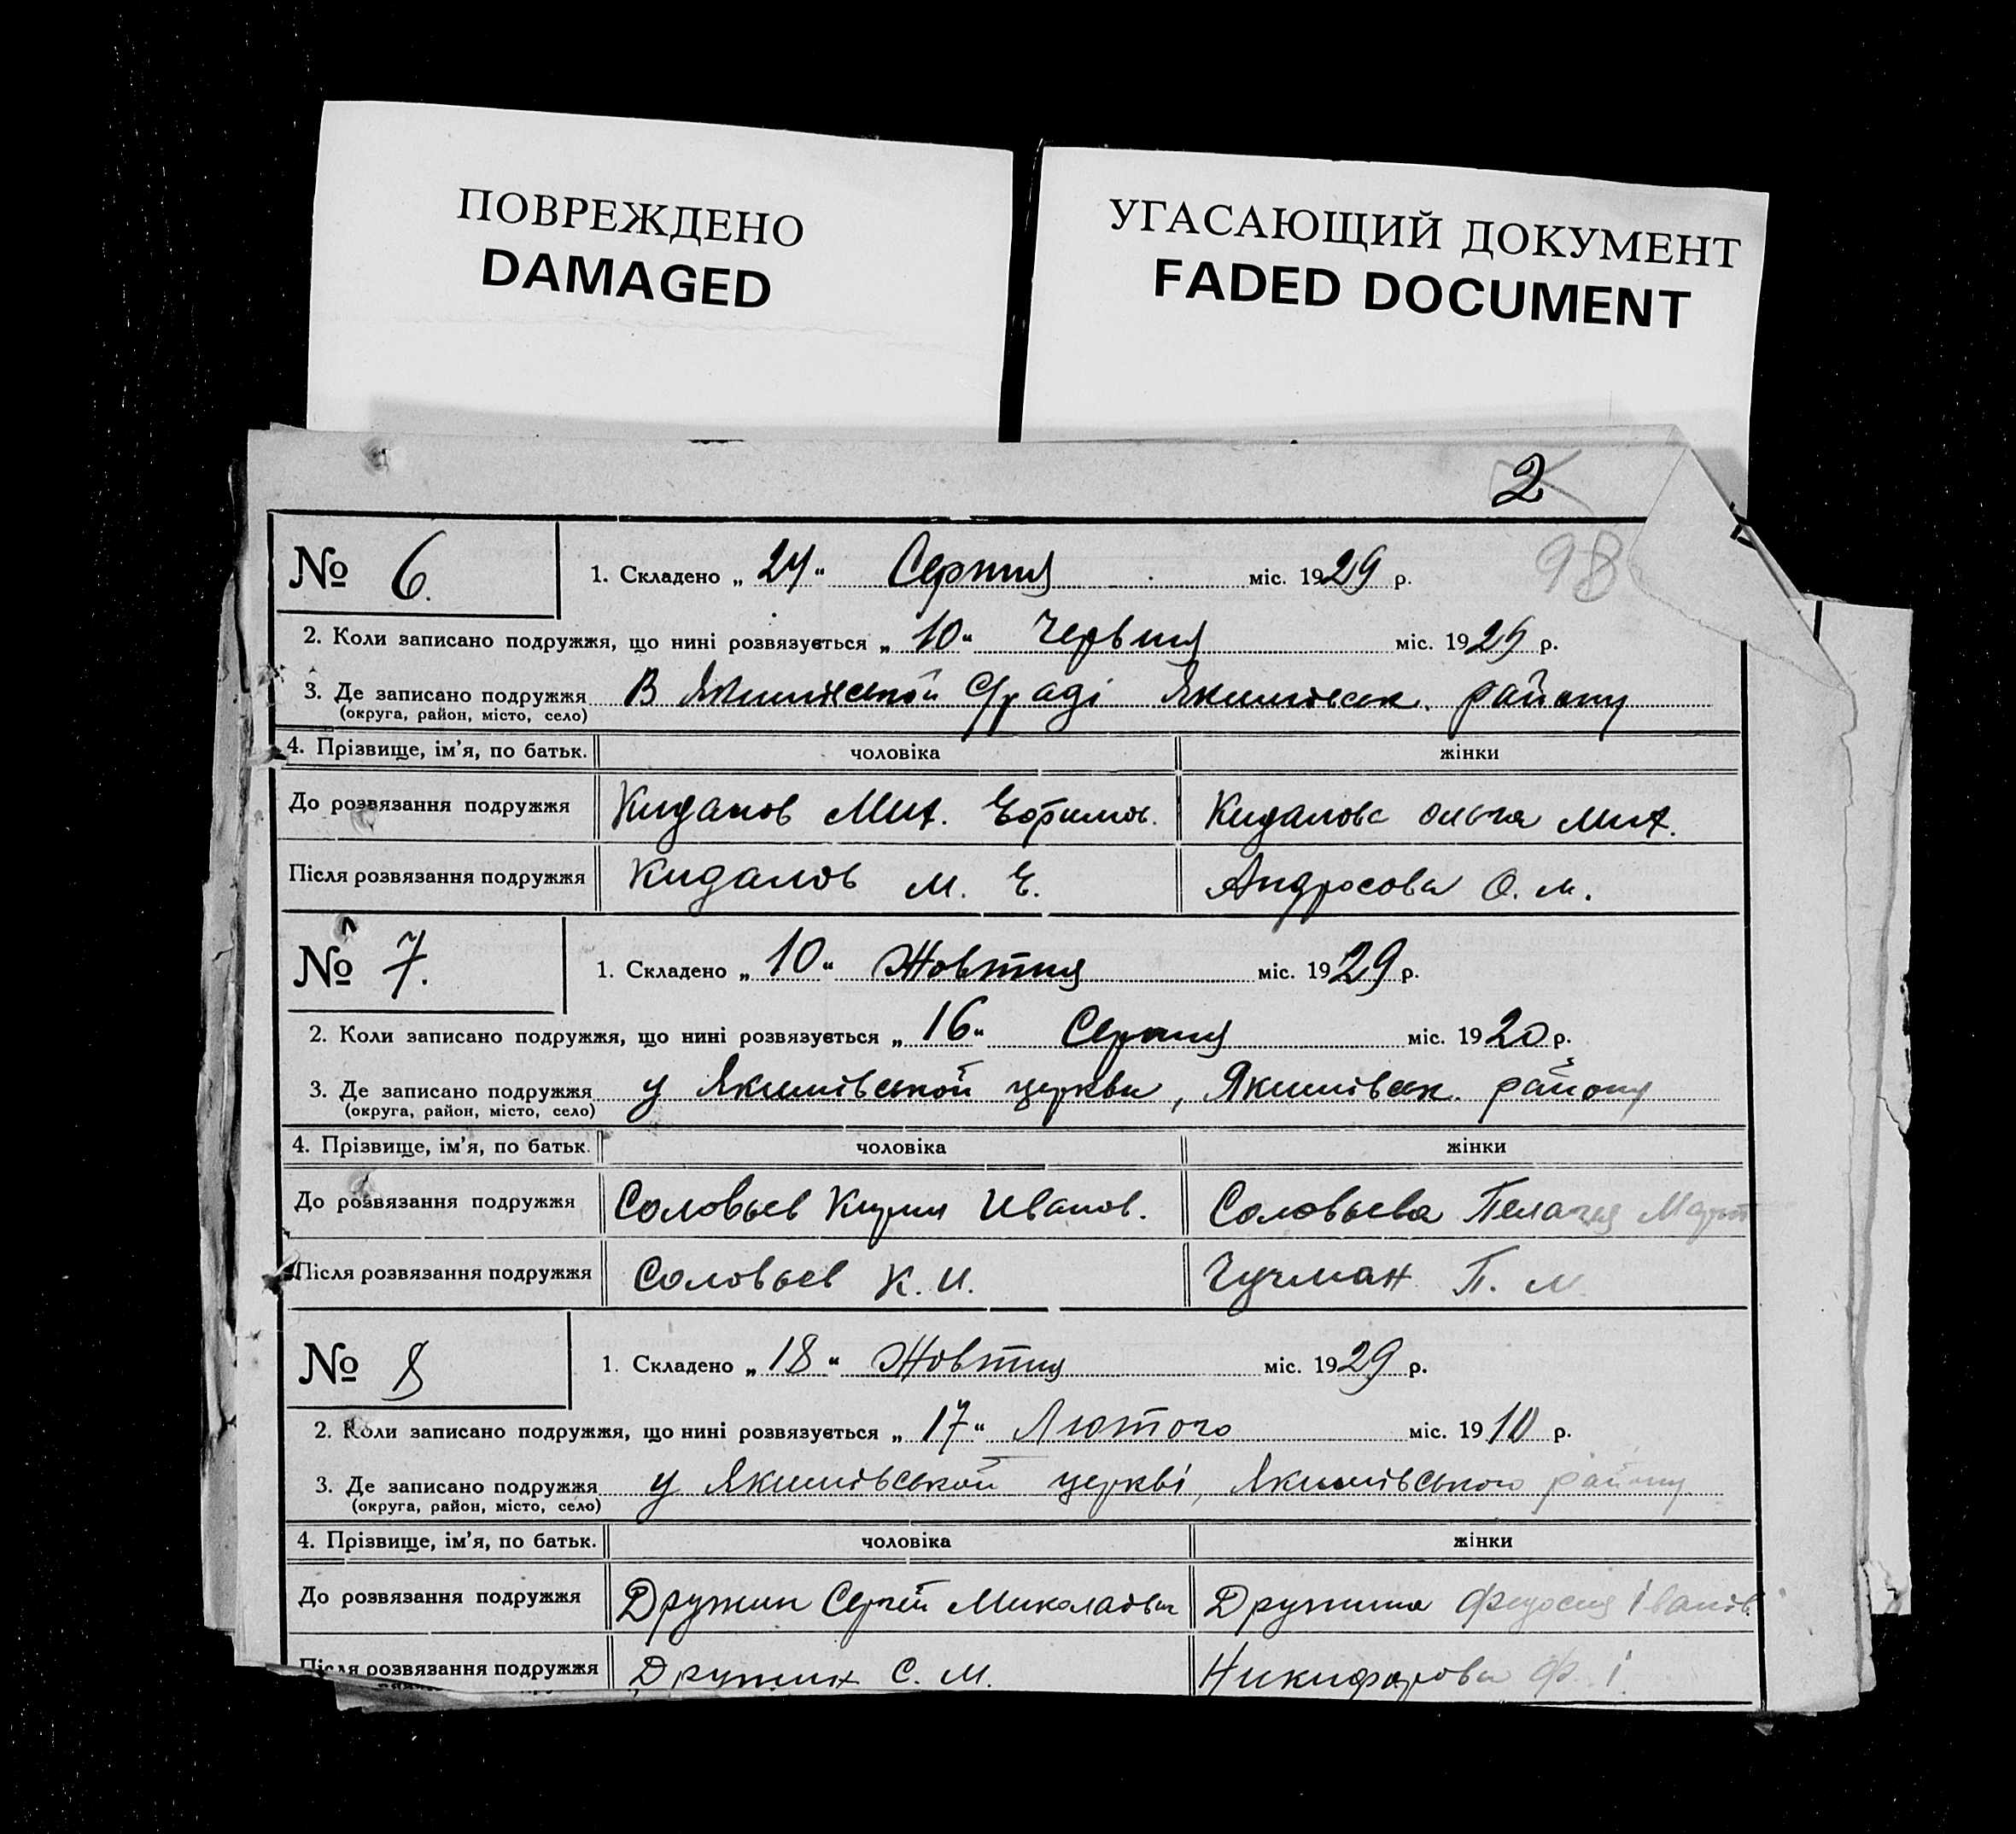 ПОВРЕЖДЕНО
DAMAGED
УГАСАЮЩИЙ ДОКУМЕНТ
FADED DOCUMENT
2
98
№ 6.
1. Складено „ 24 “ Серпня міс. 1929 р.
2. Коли записано подружжя, що нині розвязується „ 10 “ Червня міс. 1929 р.
3. Де записано подружжя В Якимівській С/раді Якимівськ. району
(округа, район, місто, село)
4. Прізвище, ім’я, по батьк. чоловіка жінки
До розвязання подружжя Кидалов Мих. Ефимов. Кидалова Ольга Мих.
Після розвязання подружжя Кидалов М. Е. Андросова О. М.
№ 7.
1. Складено „ 10 “ Жовтня міс. 1929 р.
2. Коли записано подружжя, що нині розвязується „ 16 “ Серпня міс. 1920 р.
3. Де записано подружжя у Якимівській церкви, Якимівськ. району
(округа, район, місто, село)
4. Прізвище, ім’я, по батьк. чоловіка жінки
До розвязання подружжя Соловьев Кирил Иванов. Соловьева Пелагея
Після розвязання подружжя Соловьев К. И. Гучман П. М
№ 8
1. Складено „ 18 “ Жовтня міс. 1929 р.
2. Коли записано подружжя, що нині розвязується „ 17 “ Лютого міс. 1910 р.
3. Де записано подружжя у Якимівській церкві, Якимівського району
(округа, район, місто, село)
4. Прізвище, ім’я, по батьк. чоловіка жінки
До розвязання подружжя Дружин Сергій Миколаевич Дружина Федосия Іванів.
Після розвязання подружжя Дружин С. М. Никифорова Ф. І.